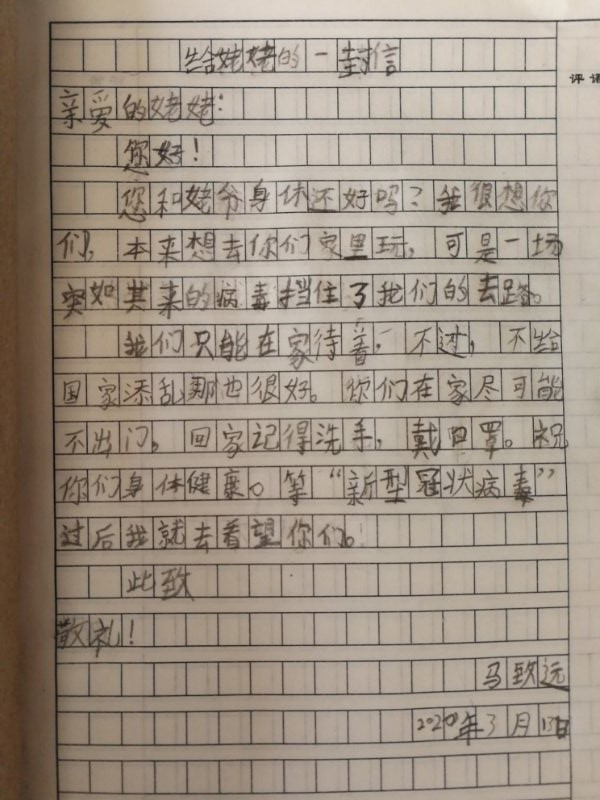 给姥姥的一封信
评语
亲爱的姥姥：
您好！
您和姥爷身体还好吗？我很想你
们，本来想去你们家里玩，可是一场
突如其来的病毒挡住了我们的去路。
我们只能在家待着，不过，不给
国家添乱那也很好。你们在家尽可能
不出门，回家记得洗手，戴口罩。祝
你们身体健康。等“新型冠状病毒”
过后我就去看望你们。
此致
敬礼！
马致远
2020年3月13日